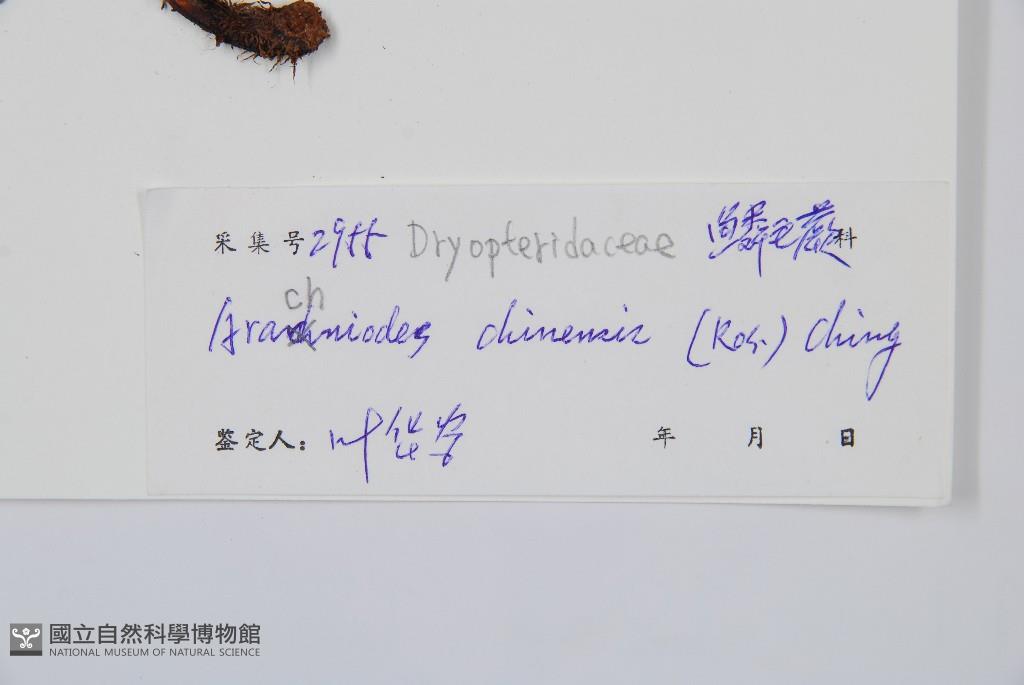 采集号 2955 Dryopteridaceae 鳞毛蕨科
ch
Arachniodes chinensis (Ros.) Ching
鉴定人: 叶华谷 年 月 日
國立自然科學博物館
NATIONAL MUSEUM OF NATURAL SCIENCE